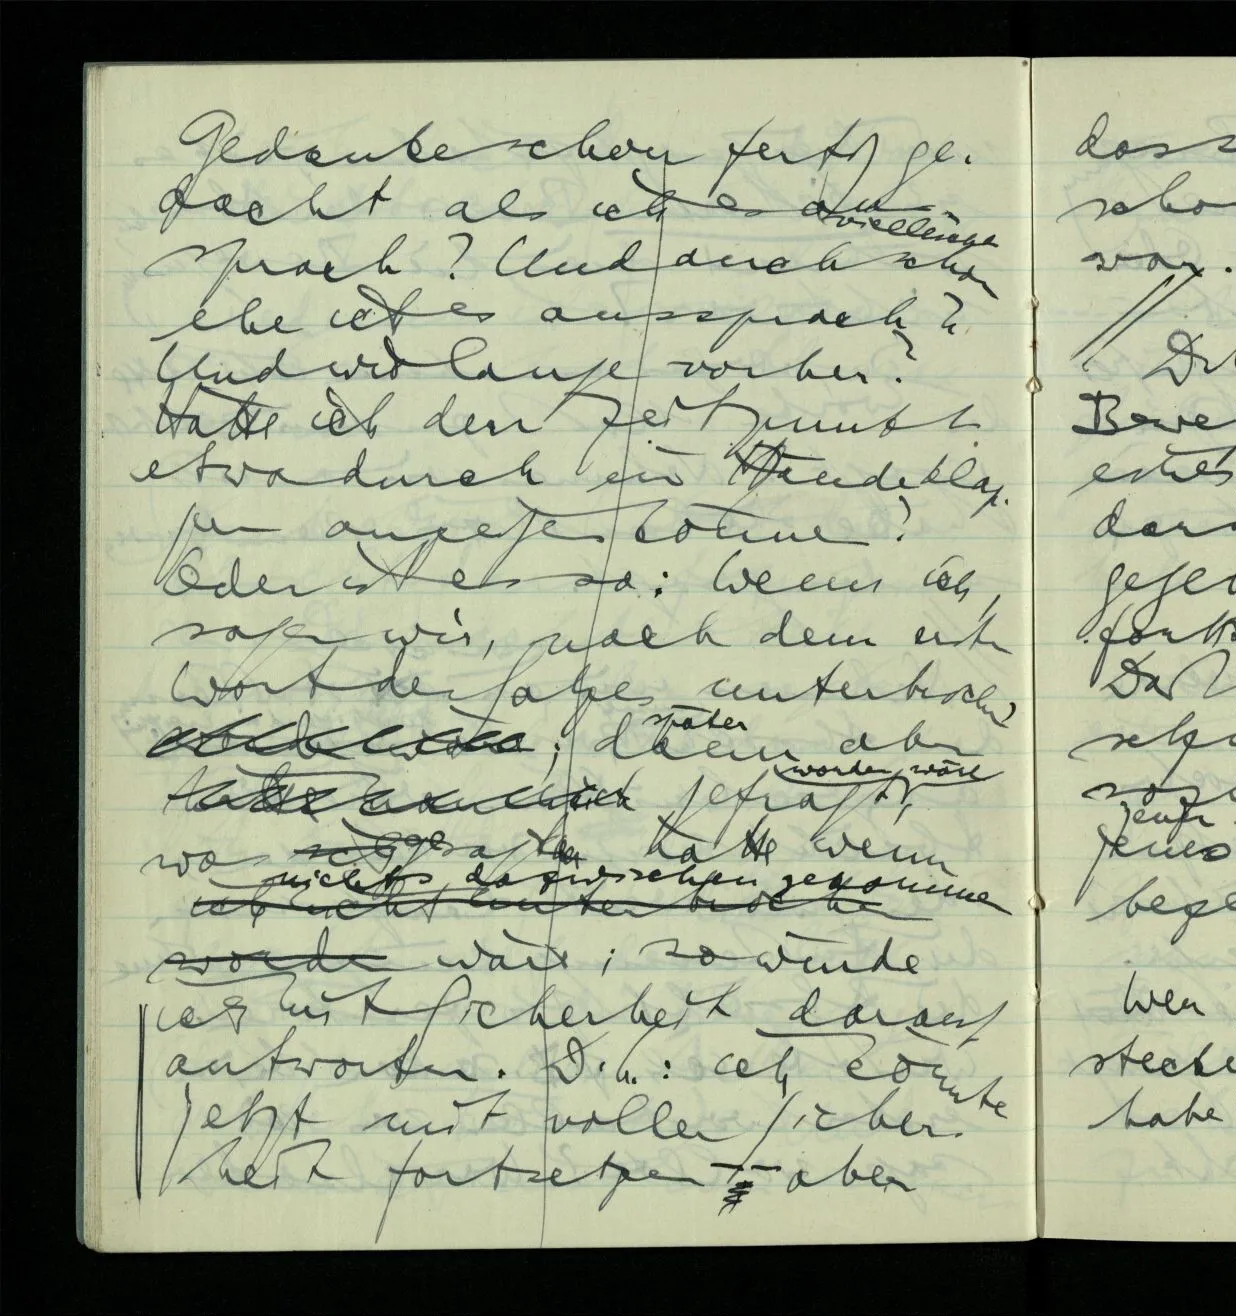 Gedanke schon fertig ge-
dacht als ich es an
sprach? Und auch vielleicht schon
ehe ich es aussprach?
Und wie lange vorher?
Hätte ich den Zeitpunkt
etwa durch ein Händeklap-
pen angeben können?
Oder ist es so: Wenn ich,
sagen wir, nach dem ersten
Wort des Satzes unterbrochen
; später dann aber
gefragt worden wäre,
was ich gesagt hätte wenn
nichts dazwischen gekommen
ich nicht unterbrochen
worden wäre; so würde
ich mit Sicherheit darauf
antworten. D.h.: ich könnte
jetzt mit voller Sicher-
heit fortsetzen — aber
dass
scho
war.
Di
Bewe
eines
dar
gegen
Das
jenes
wen
stecke
habe